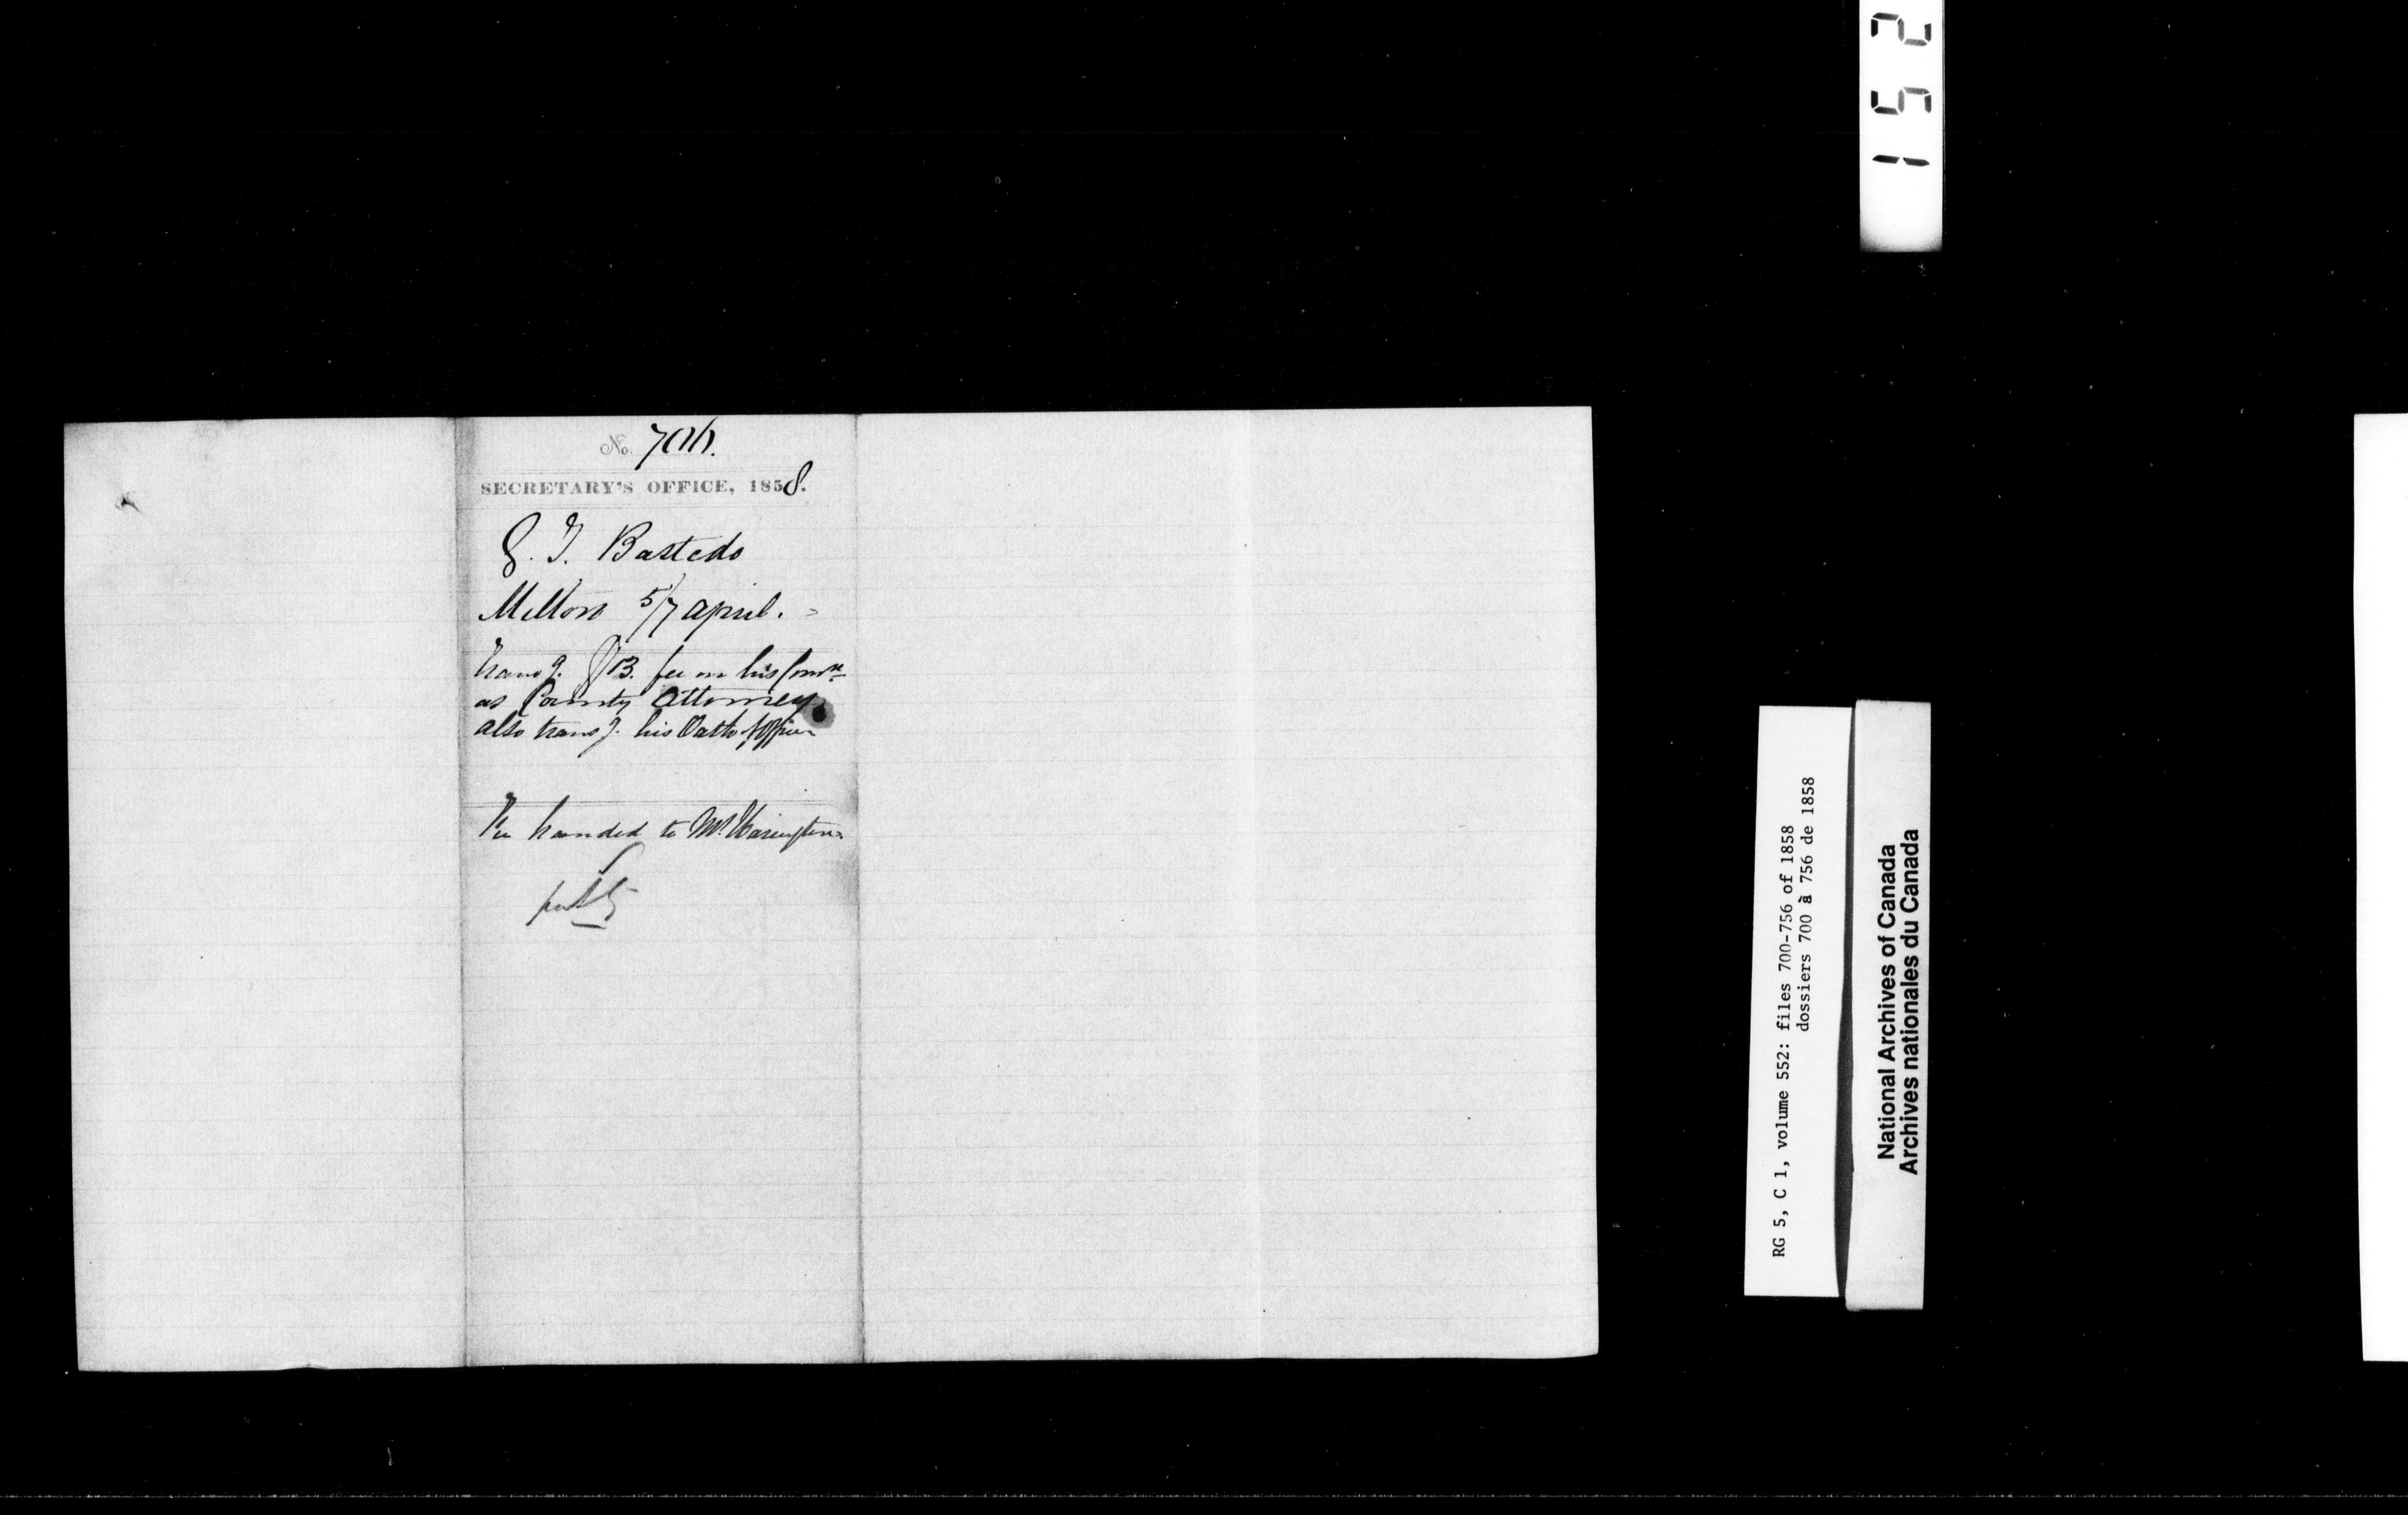 No. 706.
SECRETARY'S OFFICE, 1858.
G. T. Bastedo
Milton 5/7 April.
transg. fee on his Comn
as County Attorney
also transg. his Oath of Office
Fee handed to Mr Harington
152
RG 5, C 1, volume 552: files 700-756 of 1858
dossiers 700 à 756 de 1858
National Archives of Canada
Archives nationales du Canada